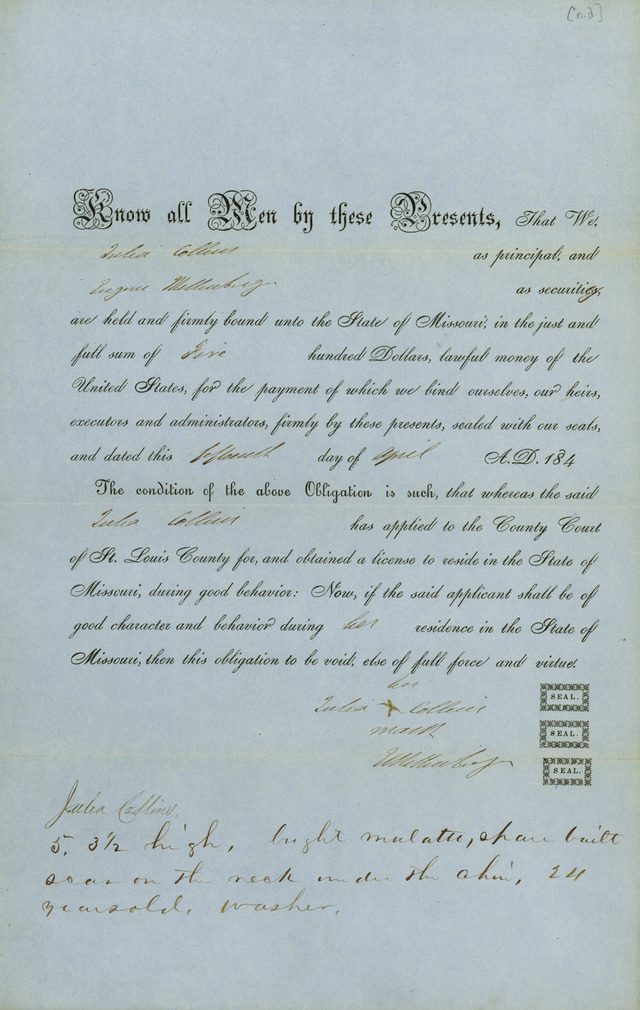 [n.d.]
Know all Men by these Presents, That We,
Julia Collins as principal, and
Eugene as securities,
are held and firmly bound unto the State of Missouri, in the just and
full sum of Five hundred Dollars, lawful money of the
United States, for the payment of which we bind ourselves, our heirs,
executors and administrators, firmly by these presents, sealed with our seals,
and dated this fifteenth day of April A.D. 184
The condition of the above Obligation is such, that whereas the said
Julia Collins has applied to the County Court
of St. Louis County for, and obtained a license to reside in the State of
Missouri, during good behavior: Now, if the said applicant shall be of
good character and behavior during her residence in the State of
Missouri, then this obligation to be void, else of full force and virtue.
her
Julia + Collins SEAL.
mark SEAL.
SEAL.
Julia Collins
5, 3 1/2 high, bright mulatto, spare built
scar on the neck under the chin, 24
years old, washer.